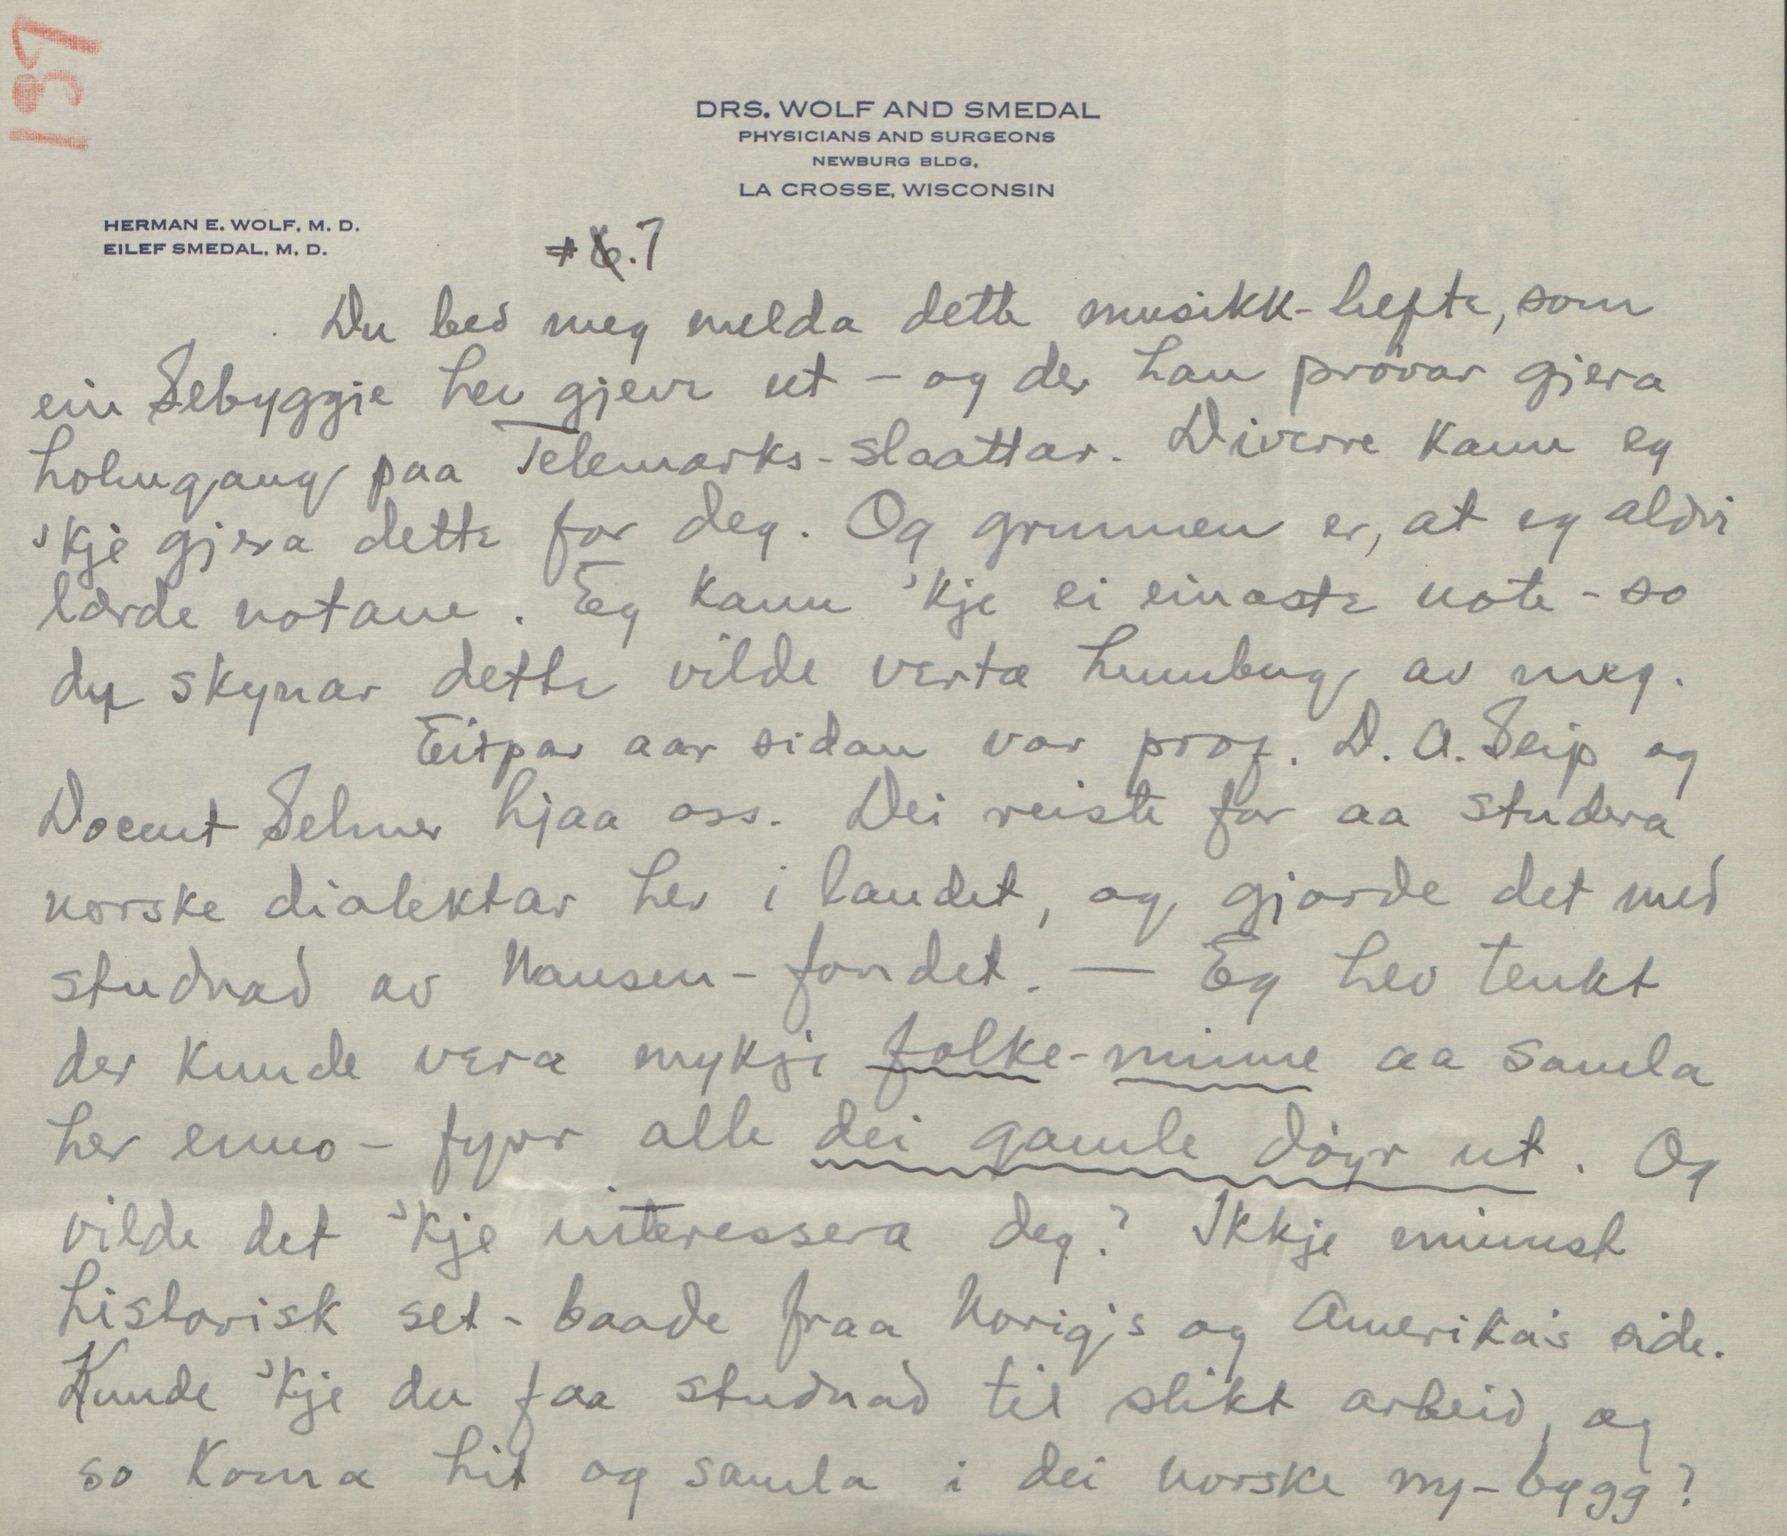 137
DRS. WOLF AND SMEDAL
PHYSICIANS AND SURGEONS
NEWBURG BLDG.
LA CROSSE, WISCONSIN
HERMAN E. WOLF, M. D.
EILEF SMEDAL, M. D.
# 6. 7
Du bed meg melda dette musikk-hefte, som
ein Sebyggje hev gjeve ut - og der han prövar gjera
holmgang paa Telemarks-slaattar. Diverre kann eg
'kje gjera dette for deg. Og grunnen er, at eg aldri
lærde notane. Eg kann 'kje ei einaste note - so
du skynar dette vilde verta humbug av meg.
Eitpar aar sidan var prof. D. A. Seip og
Docent Selmer hjaa oss. Dei reiste for aa studera
norske dialektar her i landet, og gjorde det med
studnad av Nansen-fondet. — Eg hev tenkt
der kunde vera mykje folke-minne aa samla
her enno - fyrr alle dei gamle döyr ut. Og
vilde det 'kje interessera deg? Ikkje minnst
historisk set - baade fraa Norigs og Amerika's side.
Kunde 'kje du faa studnad til slikt arbeid, og
so koma hit og samla i dei norske ny-bygg?